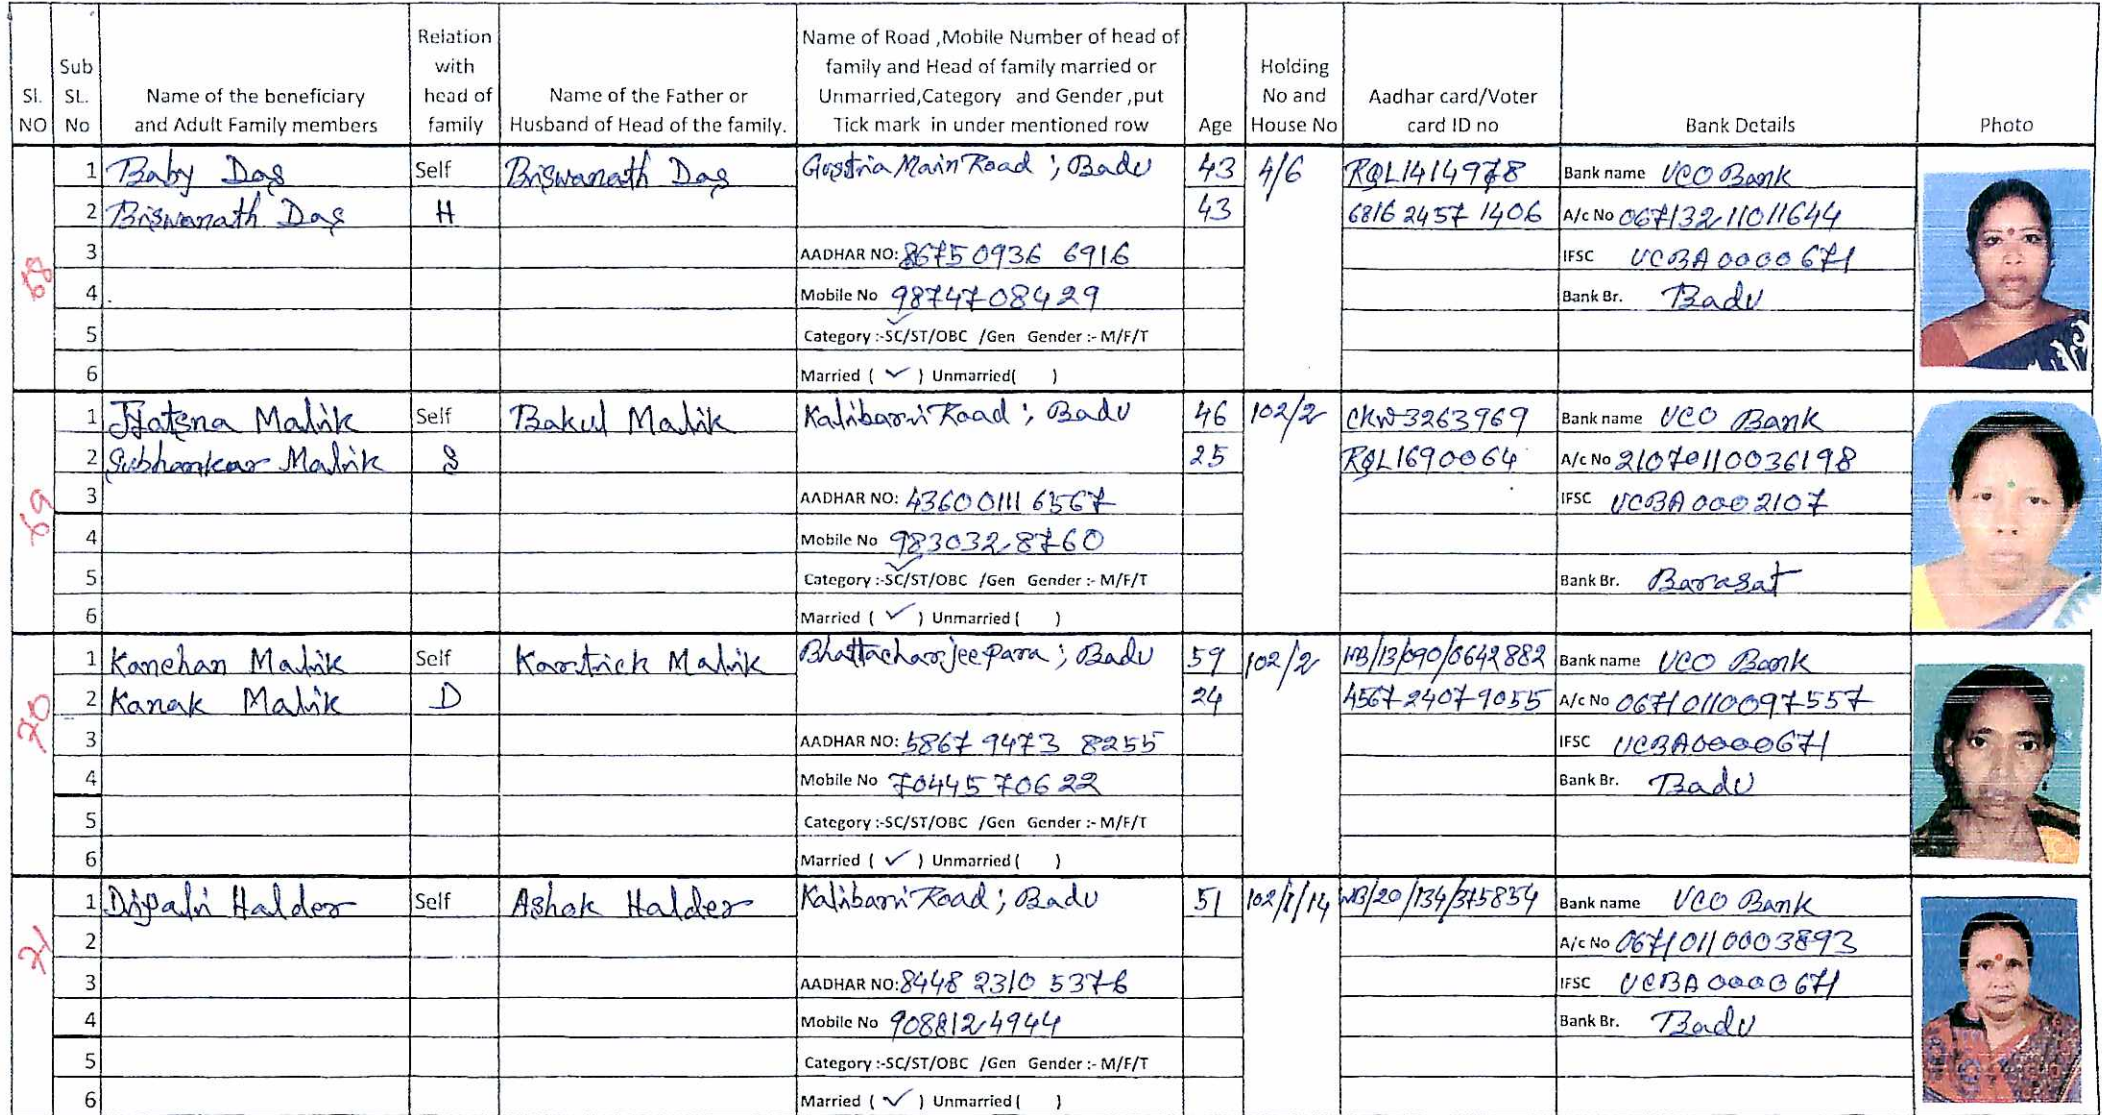 Sl. NO | Sub SL. No | Name of the beneficiary and Adult Family members | Relation with head of family | Name of the Father or Husband of Head of the family. | Name of Road ,Mobile Number of head of family and Head of family married or Unmarried,Category and Gender ,put Tick mark in under mentioned row | Age | Holding No and House No | Aadhar card/Voter card ID no | Bank Details | Photo
68
1 Baby Das Self Biswanath Das Gostria Main Road ; Badu 43 4/6 RQL1414978 Bank name UCO Bank
2 Biswanath Das H 43 6816 2457 1406 A/c No 06713211011644
3 AADHAR NO: 8675 0936 6916 IFSC UCBA0000671
4 Mobile No 9874708429 Bank Br. Badu
5 Category :-SC/ST/OBC /Gen Gender :- M/F/T
6 Married ( ✓ ) Unmarried( )
69
1 Jyotsna Malik Self Bakul Malik Kalibari Road ; Badu 46 102/2 CKW3263969 Bank name UCO Bank
2 Subhankar Malik S 25 RQL1690064 A/c No 21070110036198
3 AADHAR NO: 4360 0111 6567 IFSC UCBA0002107
4 Mobile No 9830328760
5 Category :-SC/ST/OBC /Gen Gender :- M/F/T Bank Br. Barasat
6 Married ( ✓ ) Unmarried ( )
70
1 Kanchan Malik Self Kartick Malik Bhattacharjee para ; Badu 59 102/2 WB/13/090/0642882 Bank name UCO Bank
2 Kanak Malik D 24 4567 2407 9055 A/c No 06710110097557
3 AADHAR NO: 5867 9473 8255 IFSC UCBA0000671
4 Mobile No 7044570622 Bank Br. Badu
5 Category :-SC/ST/OBC /Gen Gender :- M/F/T
6 Married ( ✓ ) Unmarried ( )
71
1 Dipali Halder Self Ashok Halder Kalibari Road ; Badu 51 102/1/14 WB/20/134/375854 Bank name UCO Bank
2 A/c No 06710110003893
3 AADHAR NO: 8448 2310 5376 IFSC UCBA0000671
4 Mobile No 9088124944 Bank Br. Badu
5 Category :-SC/ST/OBC /Gen Gender :- M/F/T
6 Married ( ✓ ) Unmarried ( )